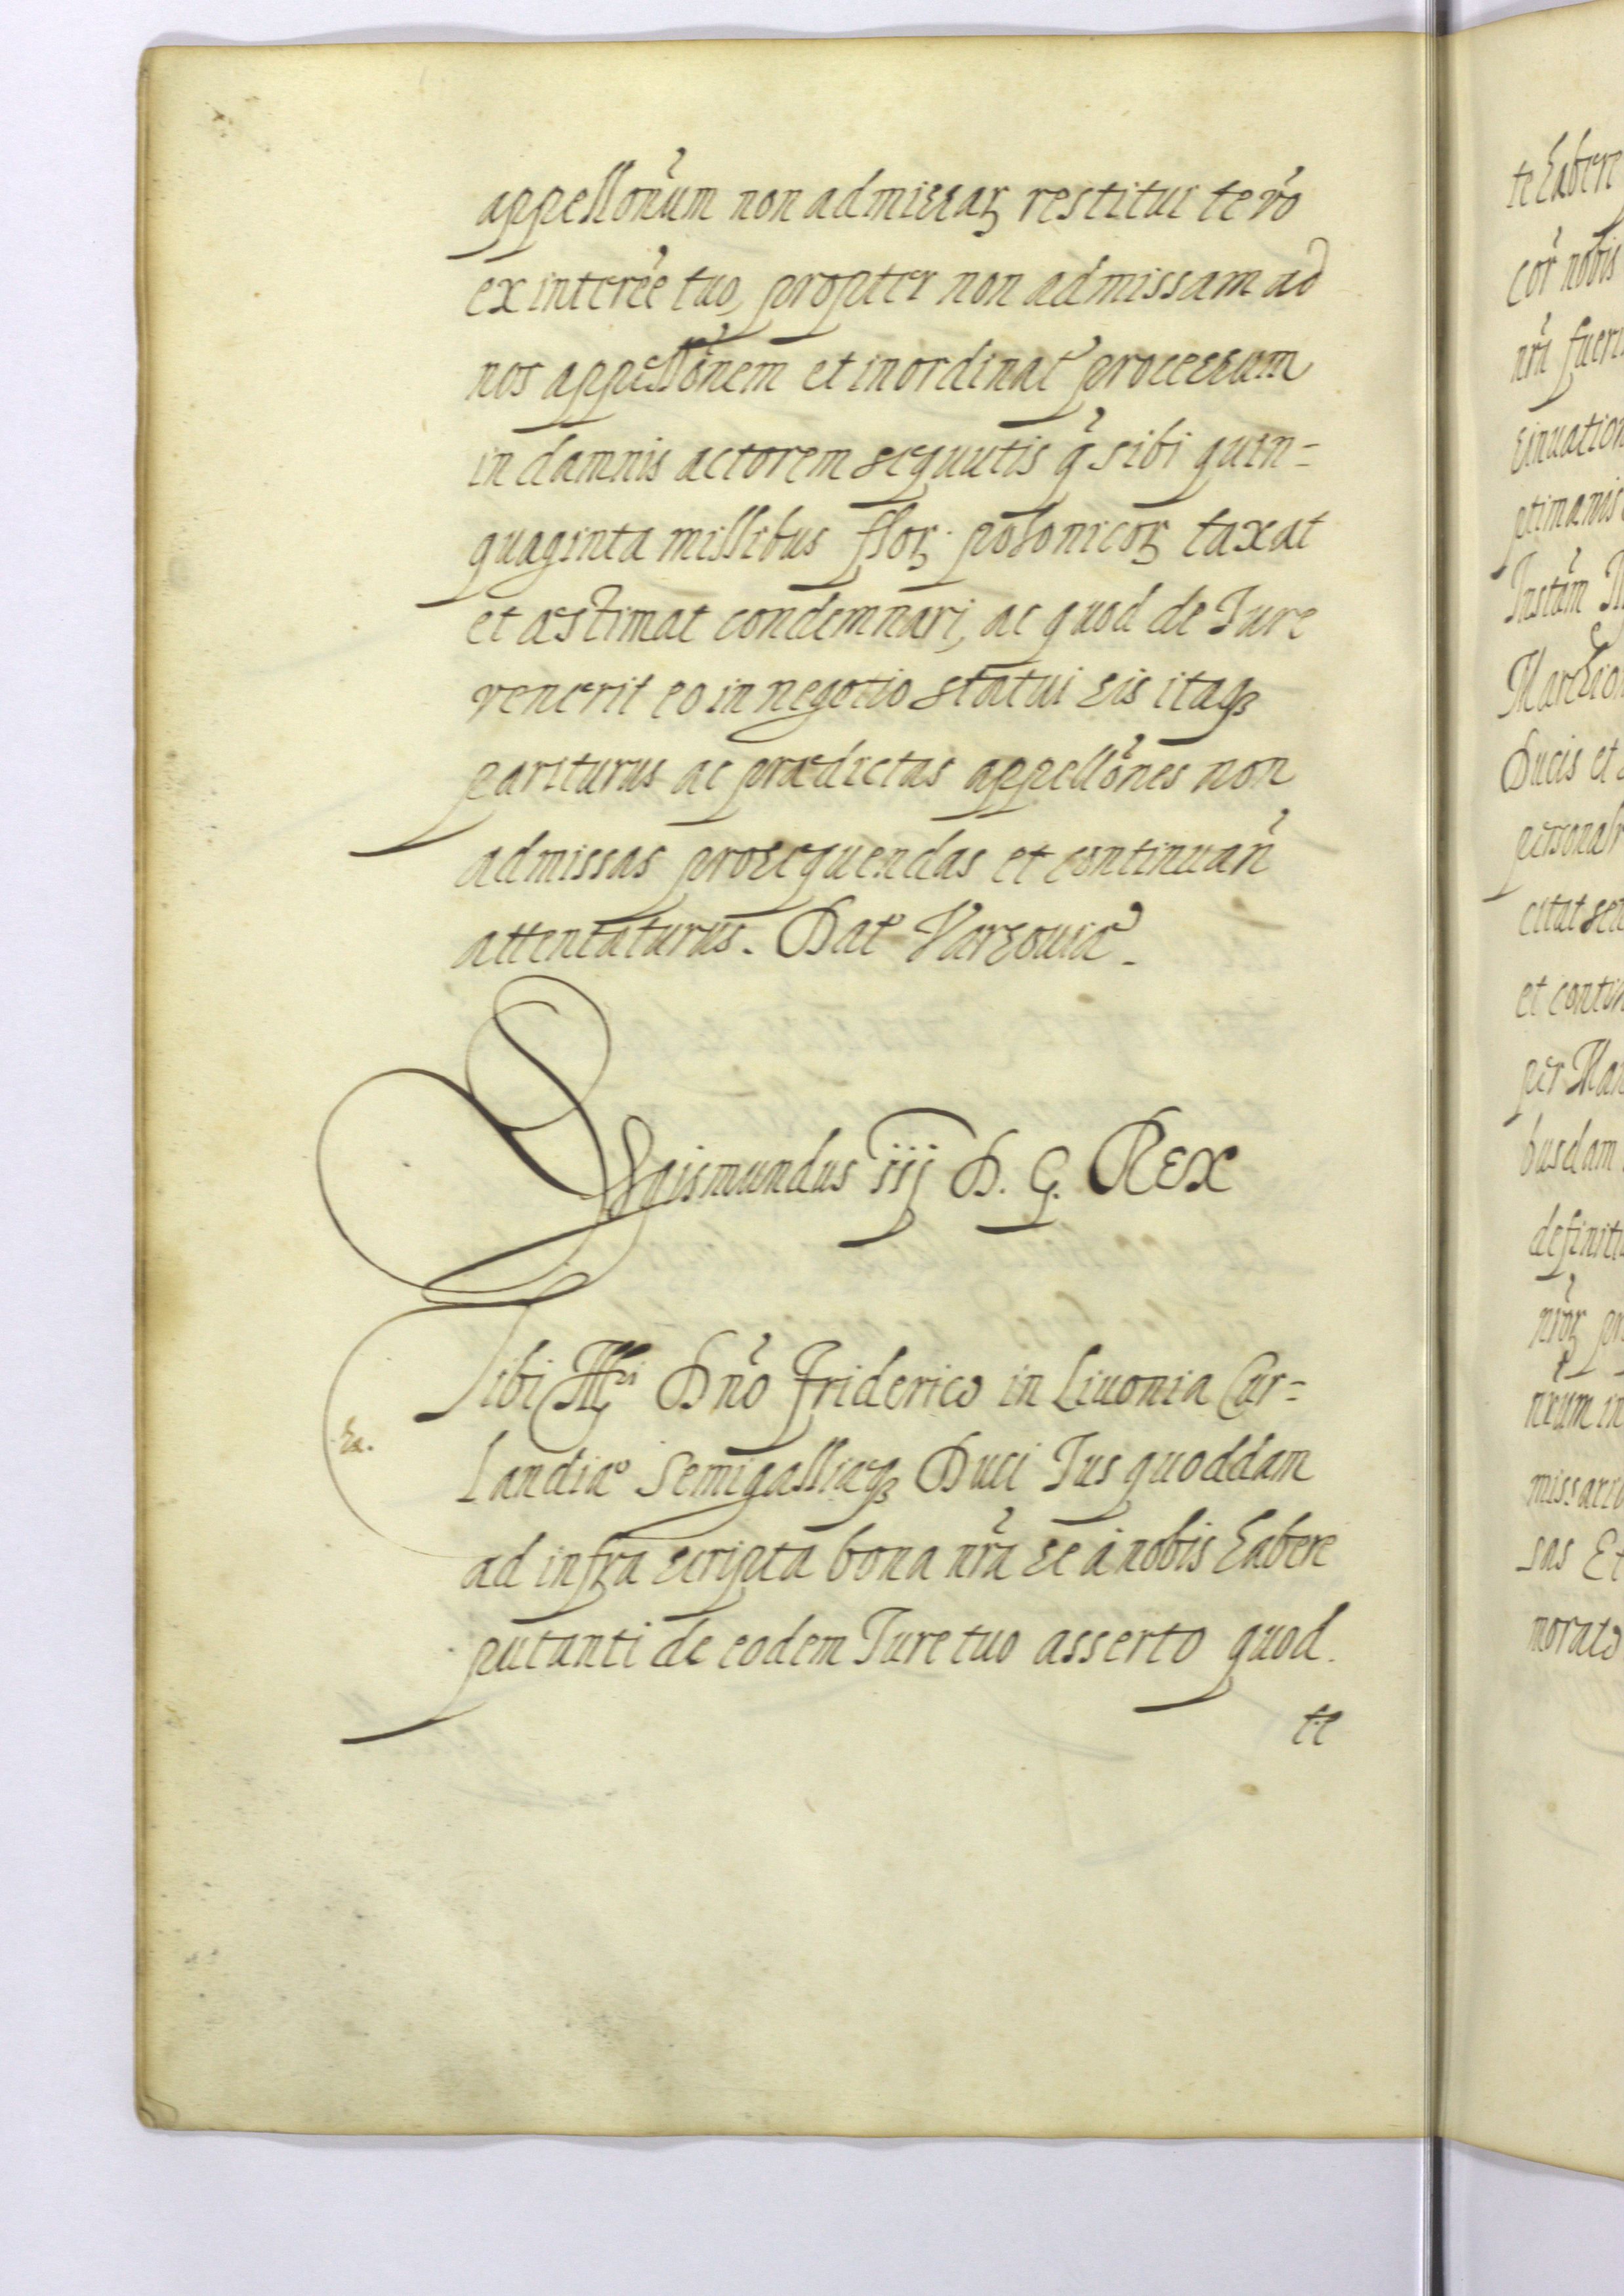 appellōnum non admissaꝝ restitui te v̄o
ex interēe tuo, propter non admissam ad
nos appellōnem et inordinat processum
in damnis actorem sequutis q̄ sibi quin-
quaginta millibus floꝝ. polonicoꝝ taxat
et æstimat condemnari, ac quod de Jure
venerit eo in negotio statui sis itaqꝫ
pariturus ac prædictas appellōnes non
admissas prosequendas et continuan̄
attentaturus. Dat Varsouiæ.
Sigismundus iij D. G. REX
Tibi Ill̄ri Dn̄o Friderico in Liuonia Cur-
landiæ Semigalliæqꝫ Duci Jus quoddam
ad infra scripta bona nr̄a se à nobis habere
putanti de eodem Jure tuo asserto quod
te
te habere
cor̄ nobis
nr̄i fueris
sinuation
ptimanis
Instām
Marchio
Ducis et
personalr
citat
et contin
per Man
busdam
definiti
nr̄oꝝ pr
nrum in
missario
sas Et
morato